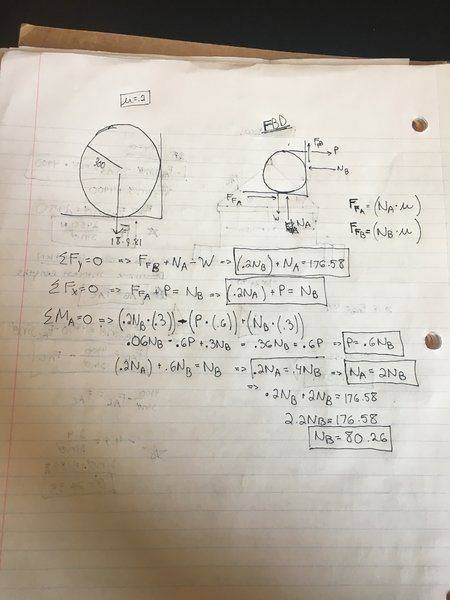 μ=.2
300
18·9.81
FBD
F_FB
P
N_B
F_FA
W
N_A
F_FA = (N_A · μ)
F_FB = (N_B · μ)
ΣFy=0 => F_FB + N_A - W => (.2N_B) + N_A = 176.58
ΣFx=0 => F_FA + P = N_B => (.2N_A) + P = N_B
ΣM_A=0 => (.2N_B·(.3)) - (P·(.6)) + (N_B·(.3))
.06N_B - .6P + .3N_B = .36N_B = .6P => P = .6N_B
(.2N_A) + .6N_B = N_B => .2N_A = .4N_B => N_A = 2N_B
=> .2N_B + 2N_B = 176.58
2.2N_B = 176.58
N_B = 80.26